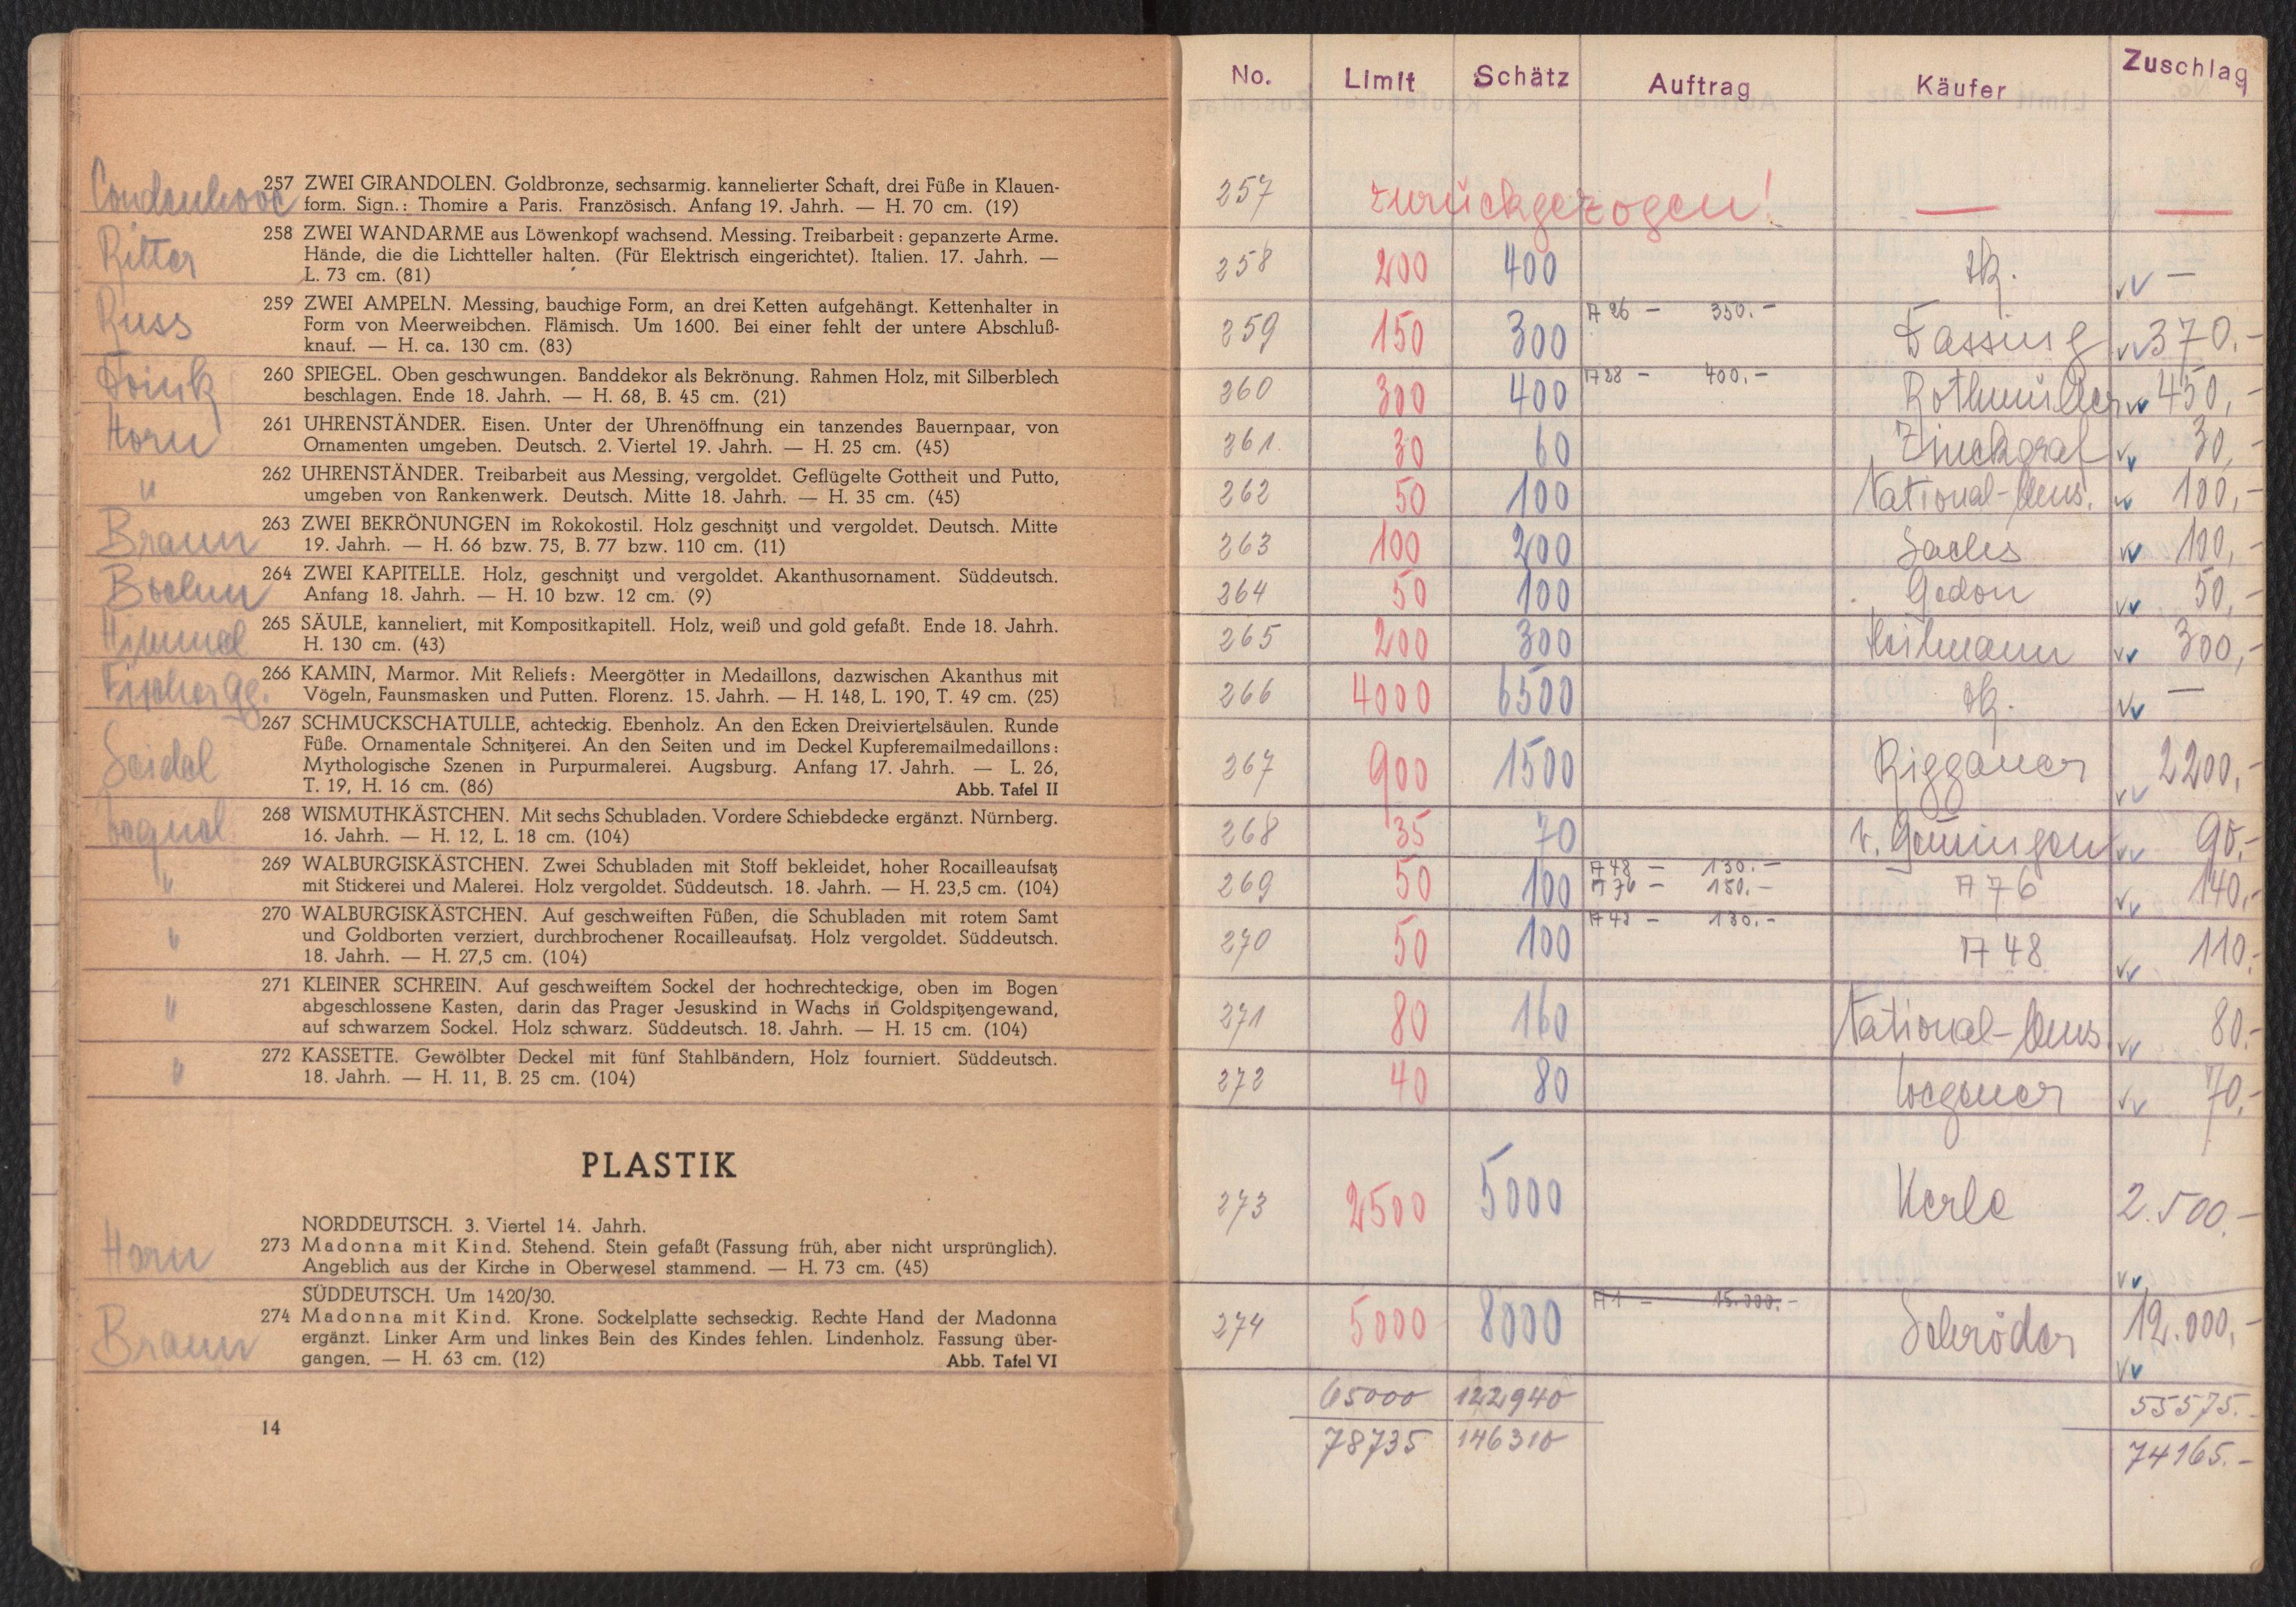 Coudenhove
257 ZWEI GIRANDOLEN. Goldbronze, sechsarmig. kannelierter Schaft, drei Füße in Klauen-
form. Sign.: Thomire a Paris. Französisch. Anfang 19. Jahrh. — H. 70 cm. (19)
Ritter
258 ZWEI WANDARME aus Löwenkopf wachsend. Messing. Treibarbeit: gepanzerte Arme.
Hände, die die Lichtteller halten. (Für Elektrisch eingerichtet). Italien. 17. Jahrh. —
L. 73 cm. (81)
Russ
259 ZWEI AMPELN. Messing, bauchige Form, an drei Ketten aufgehängt. Kettenhalter in
Form von Meerweibchen. Flämisch. Um 1600. Bei einer fehlt der untere Abschluß-
knauf. — H. ca. 130 cm. (83)
260 SPIEGEL. Oben geschwungen. Banddekor als Bekrönung. Rahmen Holz, mit Silberblech
beschlagen. Ende 18. Jahrh. — H. 68, B. 45 cm. (21)
Horn
261 UHRENSTÄNDER. Eisen. Unter der Uhrenöffnung ein tanzendes Bauernpaar, von
Ornamenten umgeben. Deutsch. 2. Viertel 19. Jahrh. — H. 25 cm. (45)
"
262 UHRENSTÄNDER. Treibarbeit aus Messing, vergoldet. Geflügelte Gottheit und Putto,
umgeben von Rankenwerk. Deutsch. Mitte 18. Jahrh. — H. 35 cm. (45)
Braun
263 ZWEI BEKRÖNUNGEN im Rokokostil. Holz geschnitzt und vergoldet. Deutsch. Mitte
19. Jahrh. — H. 66 bzw. 75, B. 77 bzw. 110 cm. (11)
Boehm
264 ZWEI KAPITELLE. Holz, geschnitzt und vergoldet. Akanthusornament. Süddeutsch.
Anfang 18. Jahrh. — H. 10 bzw. 12 cm. (9)
Himmel
265 SÄULE, kanneliert, mit Kompositkapitell. Holz, weiß und gold gefaßt. Ende 18. Jahrh.
H. 130 cm. (43)
Fischer
266 KAMIN, Marmor. Mit Reliefs: Meergötter in Medaillons, dazwischen Akanthus mit
Vögeln, Faunsmasken und Putten. Florenz. 15. Jahrh. — H. 148, L. 190, T. 49 cm. (25)
Seidel
267 SCHMUCKSCHATULLE, achteckig. Ebenholz. An den Ecken Dreiviertelsäulen. Runde
Füße. Ornamentale Schnitzerei. An den Seiten und im Deckel Kupferemailmedaillons:
Mythologische Szenen in Purpurmalerei. Augsburg. Anfang 17. Jahrh. — L. 26,
T. 19, H. 16 cm. (86) Abb. Tafel II
268 WISMUTHKÄSTCHEN. Mit sechs Schubladen. Vordere Schiebdecke ergänzt. Nürnberg.
16. Jahrh. — H. 12, L. 18 cm. (104)
"
269 WALBURGISKÄSTCHEN. Zwei Schubladen mit Stoff bekleidet, hoher Rocailleaufsatz
mit Stickerei und Malerei. Holz vergoldet. Süddeutsch. 18. Jahrh. — H. 23,5 cm. (104)
"
270 WALBURGISKÄSTCHEN. Auf geschweiften Füßen, die Schubladen mit rotem Samt
und Goldborten verziert, durchbrochener Rocailleaufsatz. Holz vergoldet. Süddeutsch.
18. Jahrh. — H. 27,5 cm. (104)
"
271 KLEINER SCHREIN. Auf geschweiftem Sockel der hochrechteckige, oben im Bogen
abgeschlossene Kasten, darin das Prager Jesuskind in Wachs in Goldspitzengewand,
auf schwarzem Sockel. Holz schwarz. Süddeutsch. 18. Jahrh. — H. 15 cm. (104)
"
272 KASSETTE. Gewölbter Deckel mit fünf Stahlbändern, Holz fourniert. Süddeutsch.
18. Jahrh. — H. 11, B. 25 cm. (104)
PLASTIK
NORDDEUTSCH. 3. Viertel 14. Jahrh.
Horn
273 Madonna mit Kind. Stehend. Stein gefaßt (Fassung früh, aber nicht ursprünglich).
Angeblich aus der Kirche in Oberwesel stammend. — H. 73 cm. (45)
SÜDDEUTSCH. Um 1420/30.
Braun
274 Madonna mit Kind. Krone. Sockelplatte sechseckig. Rechte Hand der Madonna
ergänzt. Linker Arm und linkes Bein des Kindes fehlen. Lindenholz. Fassung über-
gangen. — H. 63 cm. (12) Abb. Tafel VI
14
No. Limit Schätz Auftrag Käufer Zuschlag
257 zurückgezogen! — —
258 200 400 —
259 150 300 A 26 — 350.— Fassing 370.—
260 300 400 A 28 — 400.— Rothmüller 450,—
261. 30 60 Zinckgraf 30,—
262 50 100 National-Mus. 100,—
263 100 200 Sachs 100,—
264 50 100 Gedon 50,—
265 200 300 Heilmann 300,—
266 4000 6500 —
267 900 1500 Riggauer 2200,—
268 35 70 v. Gemmingen 90.—
269 50 100 A 48 — 130.— A 76 140,—
A 76 — 150.—
270 50 100 A 48 — 130.— A 48 110.—
271 80 160 National-Mus. 80.—
272 40 80 Wegener 70,—
273 2500 5000 Kerle 2.500.—
274 5000 8000 A 1 — 15.000.— Schröder 12.000,—
65000 122940 55575.—
78735 146310 74165.—